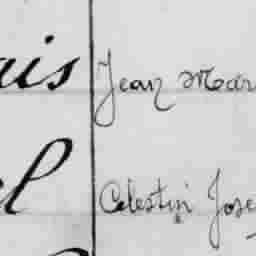 ais Jean Mar
el Celestin Jose